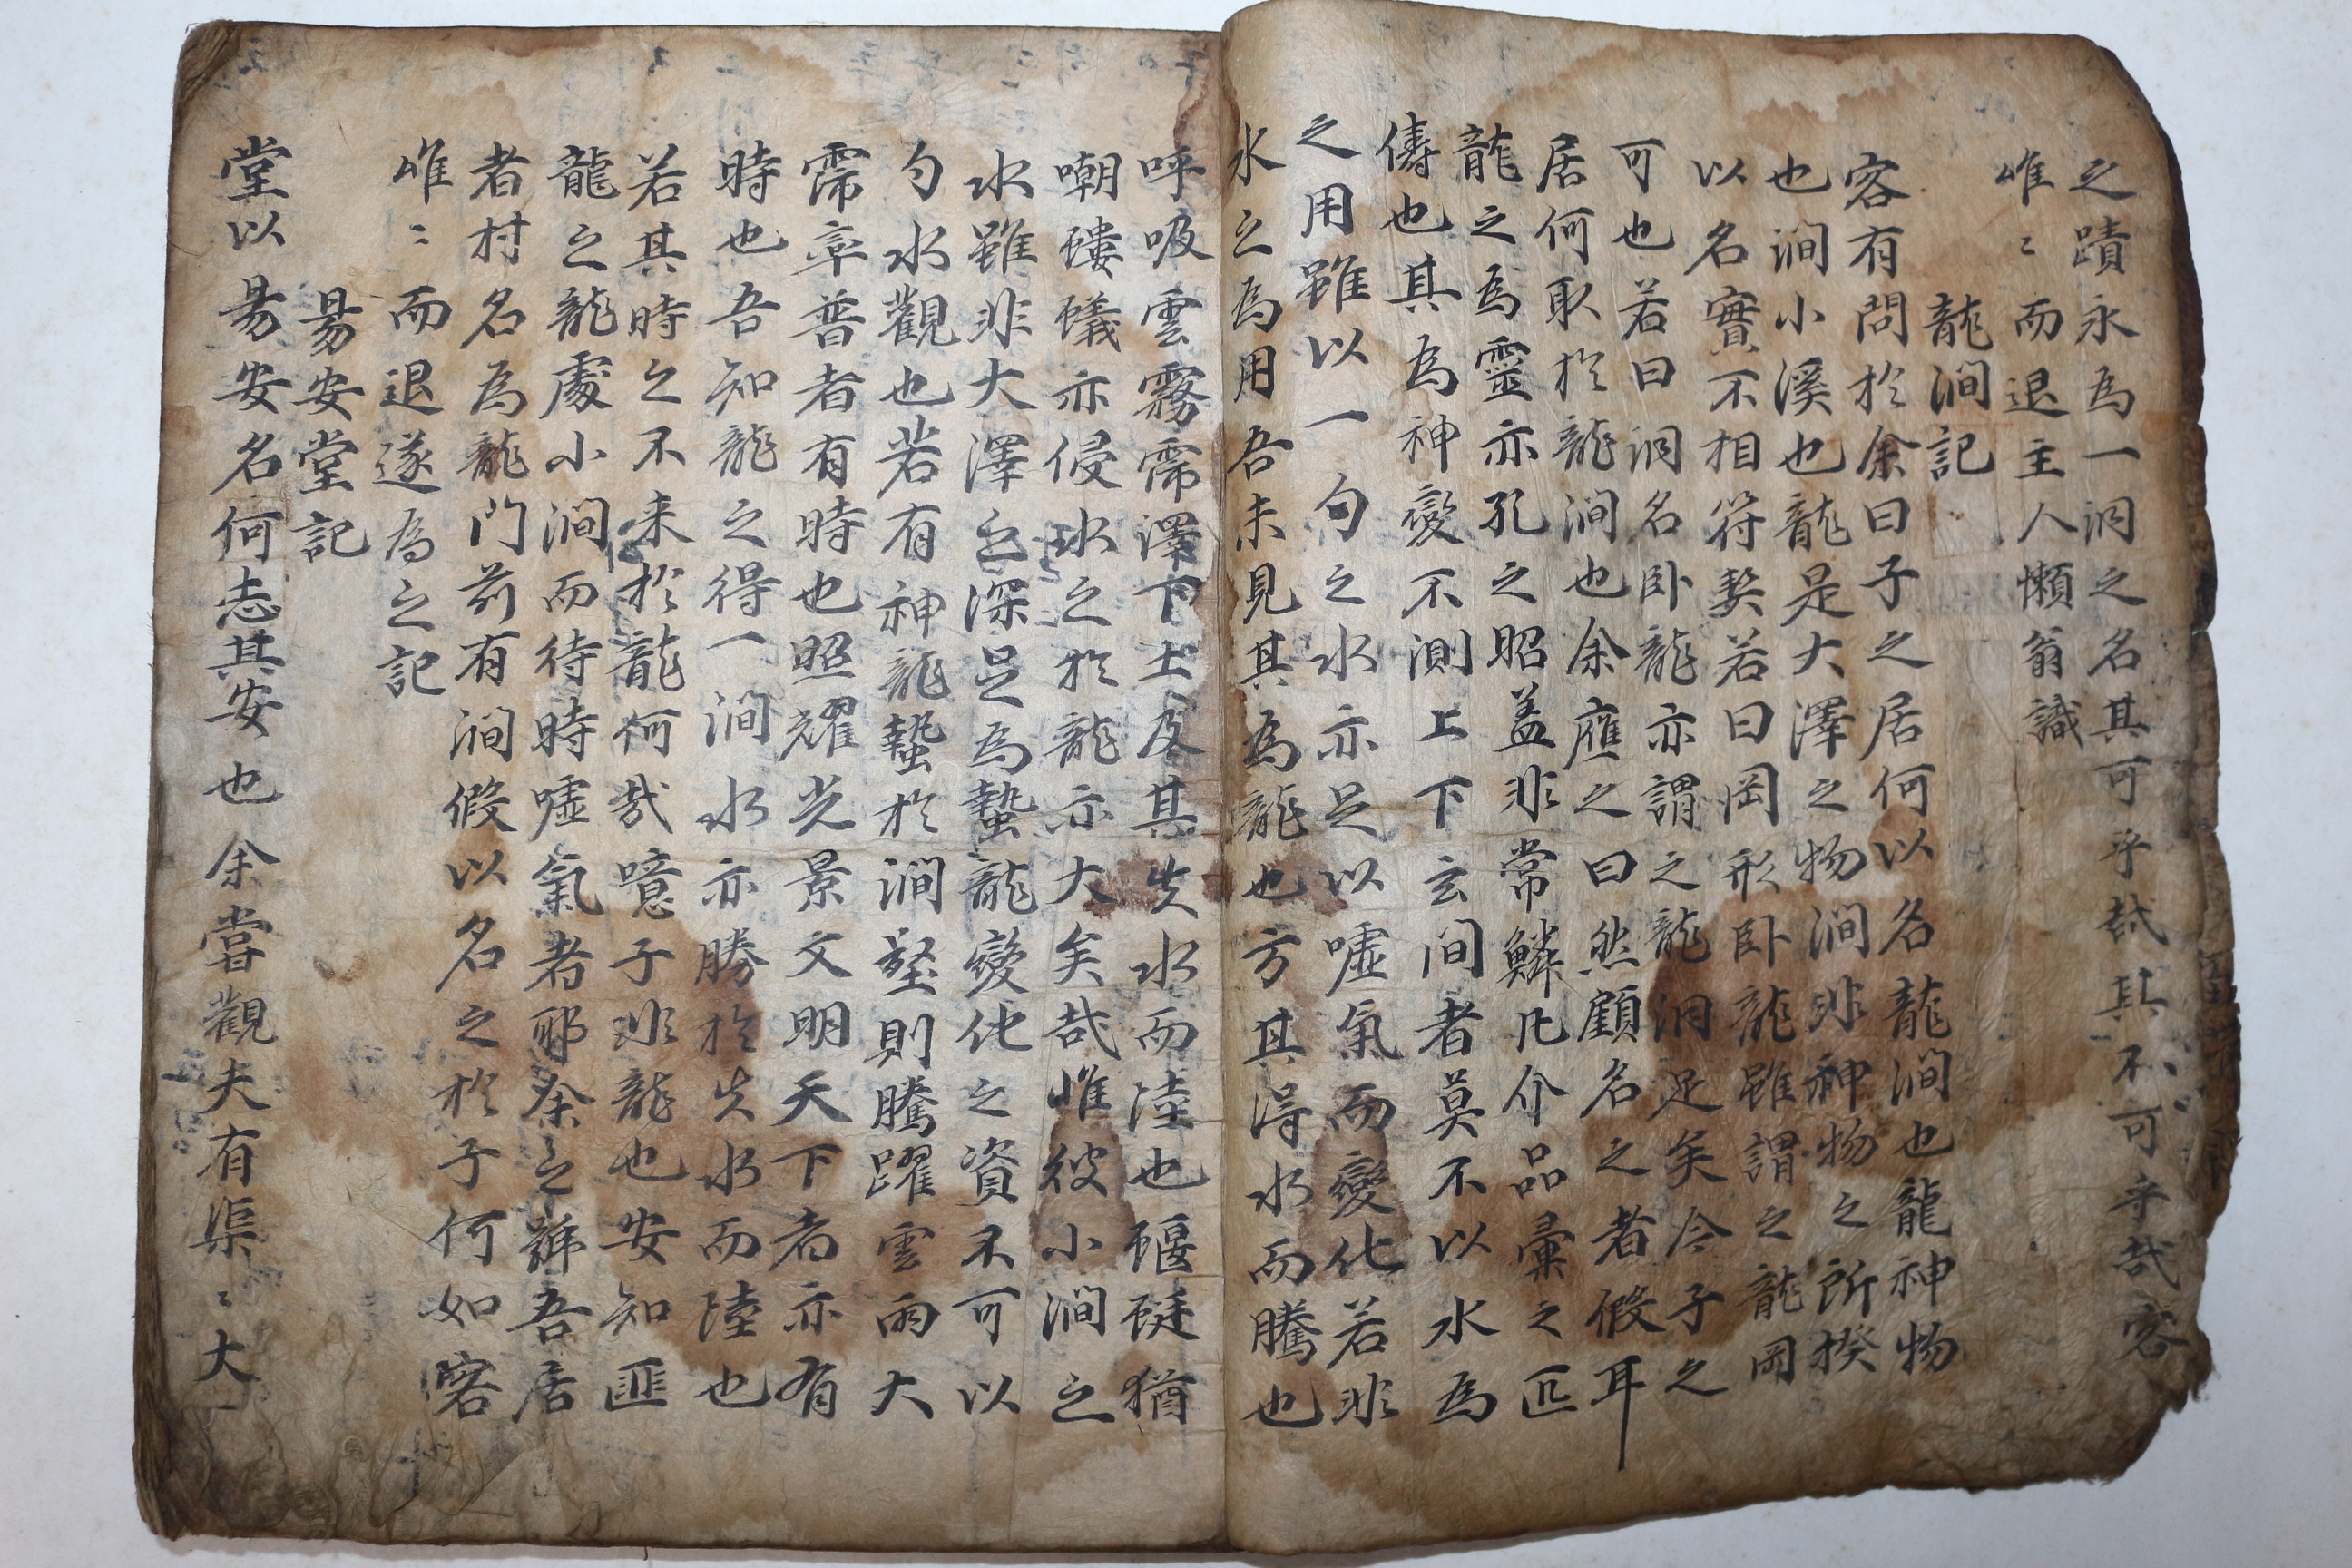 之蹟永為一洞之名其可乎哉其不可乎哉客
唯〻而退主人懶翁識
龍澗記
客有問於余曰子之居何以名龍澗也龍神物
也澗小溪也龍是大澤之物澗非神物之所揆
以名實不相符契若曰岡形臥龍雖謂之龍岡
可也若曰洞名臥龍亦謂之龍洞足矣今子之
居何取於龍澗也余應之曰然顧名之者假耳
龍之為靈亦孔之昭盖非常鱗凡介品彙之匹
儔也其為神變不測上下玄間者莫不以水為
之用雖以一勺之水亦足以噓氣而變化若非
水之為用吾未見其為龍也方其得水而騰也
呼吸雲霧霈澤下土及其失水而陸也蝘蜓猶
嘲螻蟻亦侵水之於龍亦大矣哉唯彼小澗之
水雖非大澤之深足為蟄龍變化之資不可以
勺水觀也若有神龍蟄於澗壑則騰躍雲雨大
霈率普者有時也照耀光景文明天下者亦有
時也吾知龍之得一澗水亦勝於失水而陸也
若其時之不来於龍何哉噫子非龍也安知匪
龍之龍處小澗而待時噓氣者耶余之號吾居
者村名為龍門前有澗假以名之於子何如客
唯〻而退遂為之記
易安堂記
堂以易安名何志其安也余嘗觀夫有渠〻大